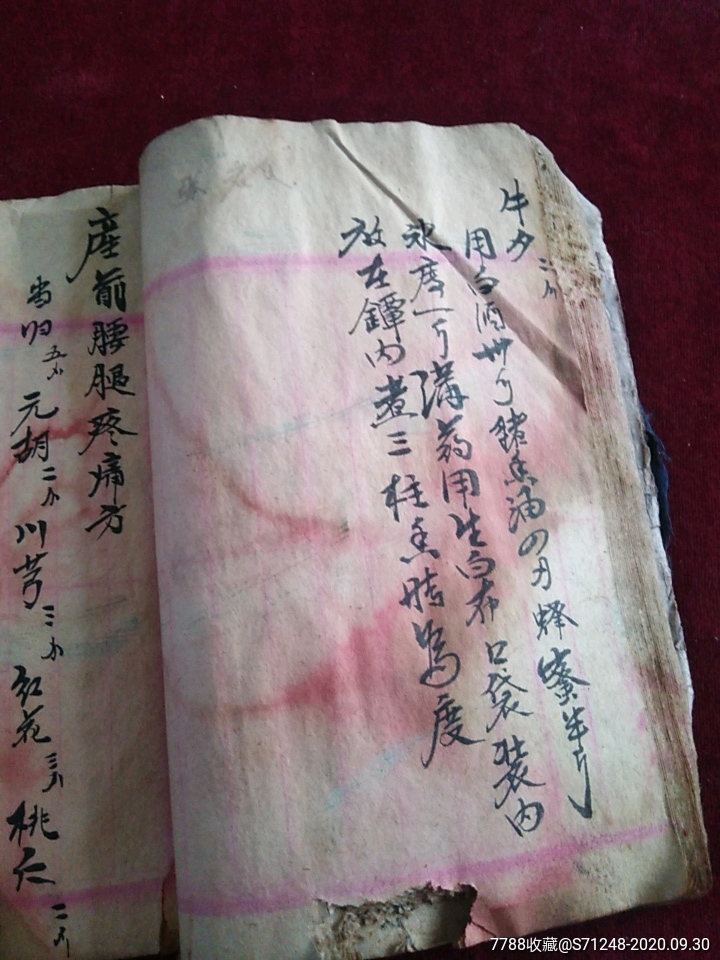 牛夕二小
用白酒卅斤猪香油四两蜂蜜半斤
冰唐一斤講药用生白布口袋装内
放在鐔内煮三柱香時為度
産前腰腿疼痛方
当归五小元胡二小川芎三小红花三小桃仁二小
7788收藏@S71248-2020.09.30